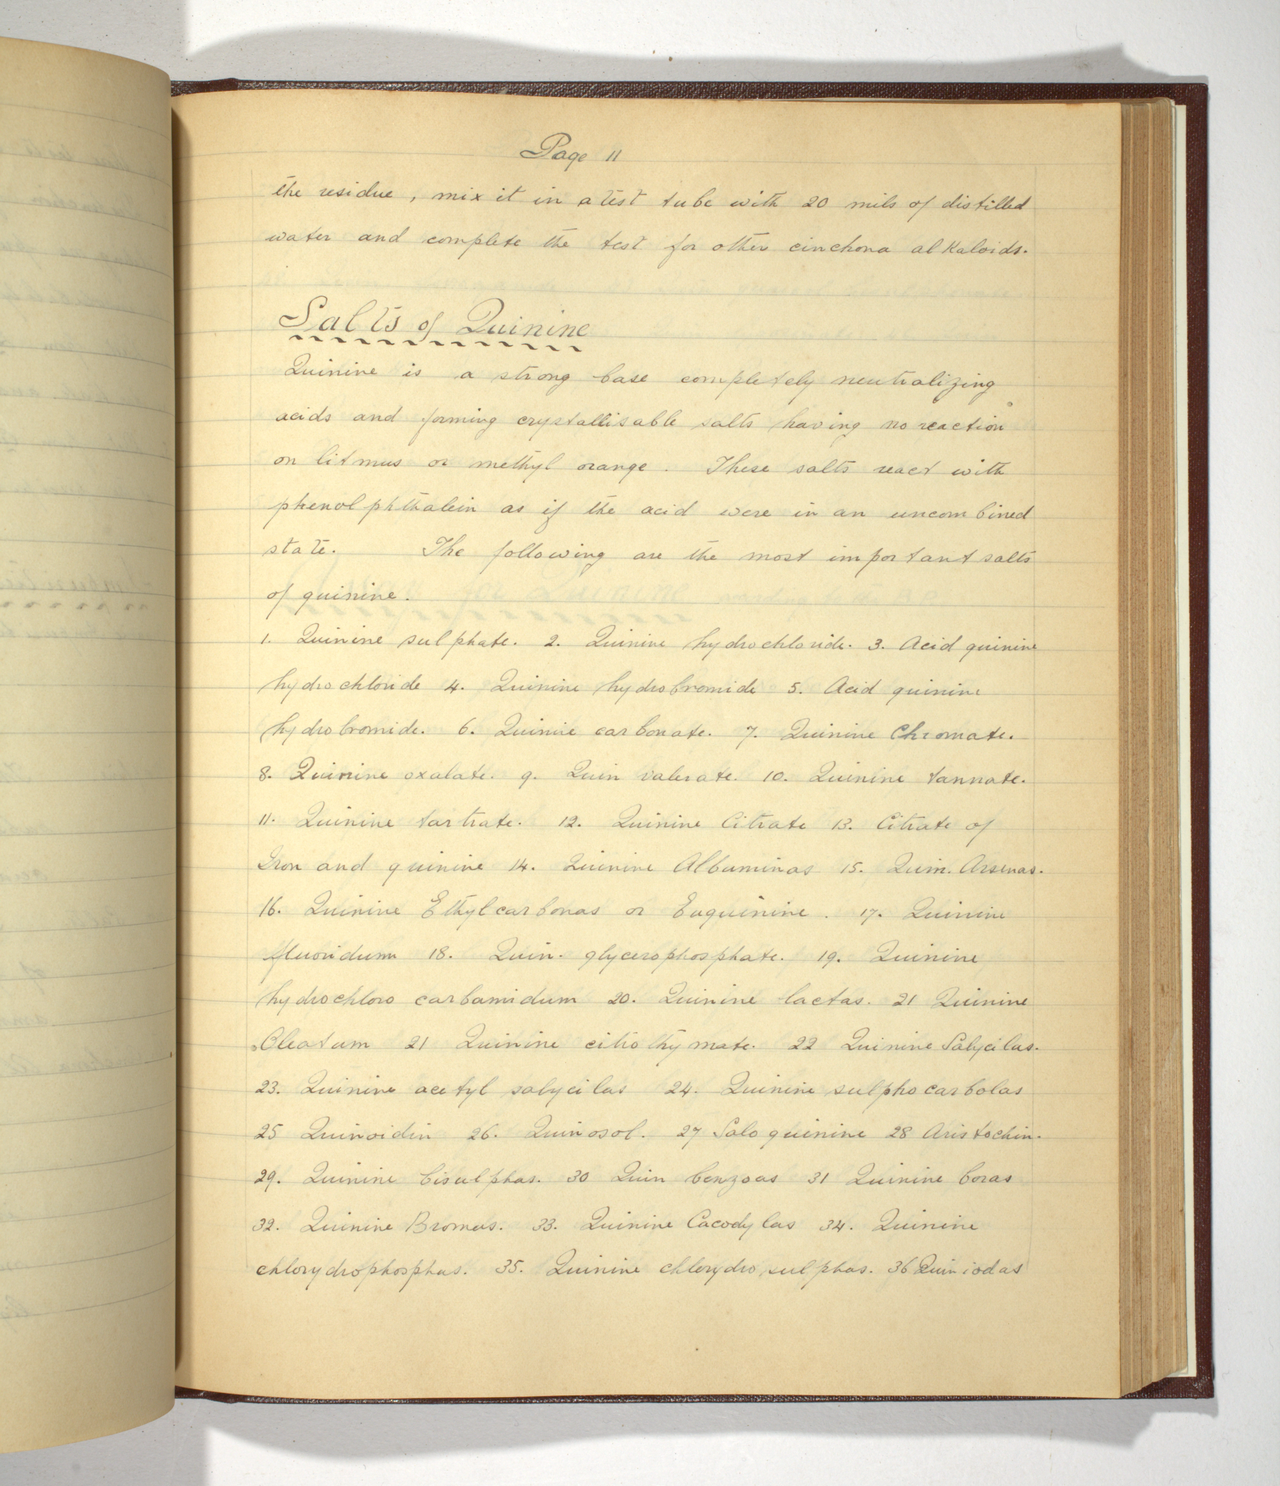 Page 11
the residue, mix it in a test tube with 20 mils of distilled
water and complete the test for other cinchona alkaloids.
Salts of Quinine
Quinine is a strong base completely neutralizing
acids and forming crystallisable salts having no reaction
on litmus or methyl orange. These salts react with
phenolphthalein as if the acid were in an uncombined
state. The following are the most important salts
of quinine.
1. Quinine sulphate. 2. Quinine hydrochloride. 3. Acid quinine
hydrochloride 4. Quinine hydrobromide 5. Acid quinine
hydrobromide. 6. Quinine carbonate. 7. Quinine Chromate.
8. Quinine oxalate. 9. Quin valerate. 10. Quinine tannate.
11. Quinine tartrate. 12. Quinine Citrate 13. Citrate of
Iron and quinine 14. Quinine Albuminas 15. Quin. Arsenas.
16. Quinine Ethylcarbonas or Euquinine. 17. Quinine
fluoridum 18. Quin. glycerophosphate. 19. Quinine
hydrochloro carbamidum 20. Quinine lactas. 21 Quinine
Oleatum 21 Quinine citrothymate. 22 Quinine Salycilas.
23. Quinine acetyl salycilas 24. Quinine sulphocarbolas
25 Quinoidin 26. Quinosol. 27 Saloquinine 28 Aristochin.
29. Quinine bisulphas. 30 Quin benzoas 31 Quinine boras
32. Quinine Bromas. 33. Quinine Cacodylas 34. Quinine
chlorydrophosphas. 35. Quinine chlorydro sulphas. 36 Quin iodas